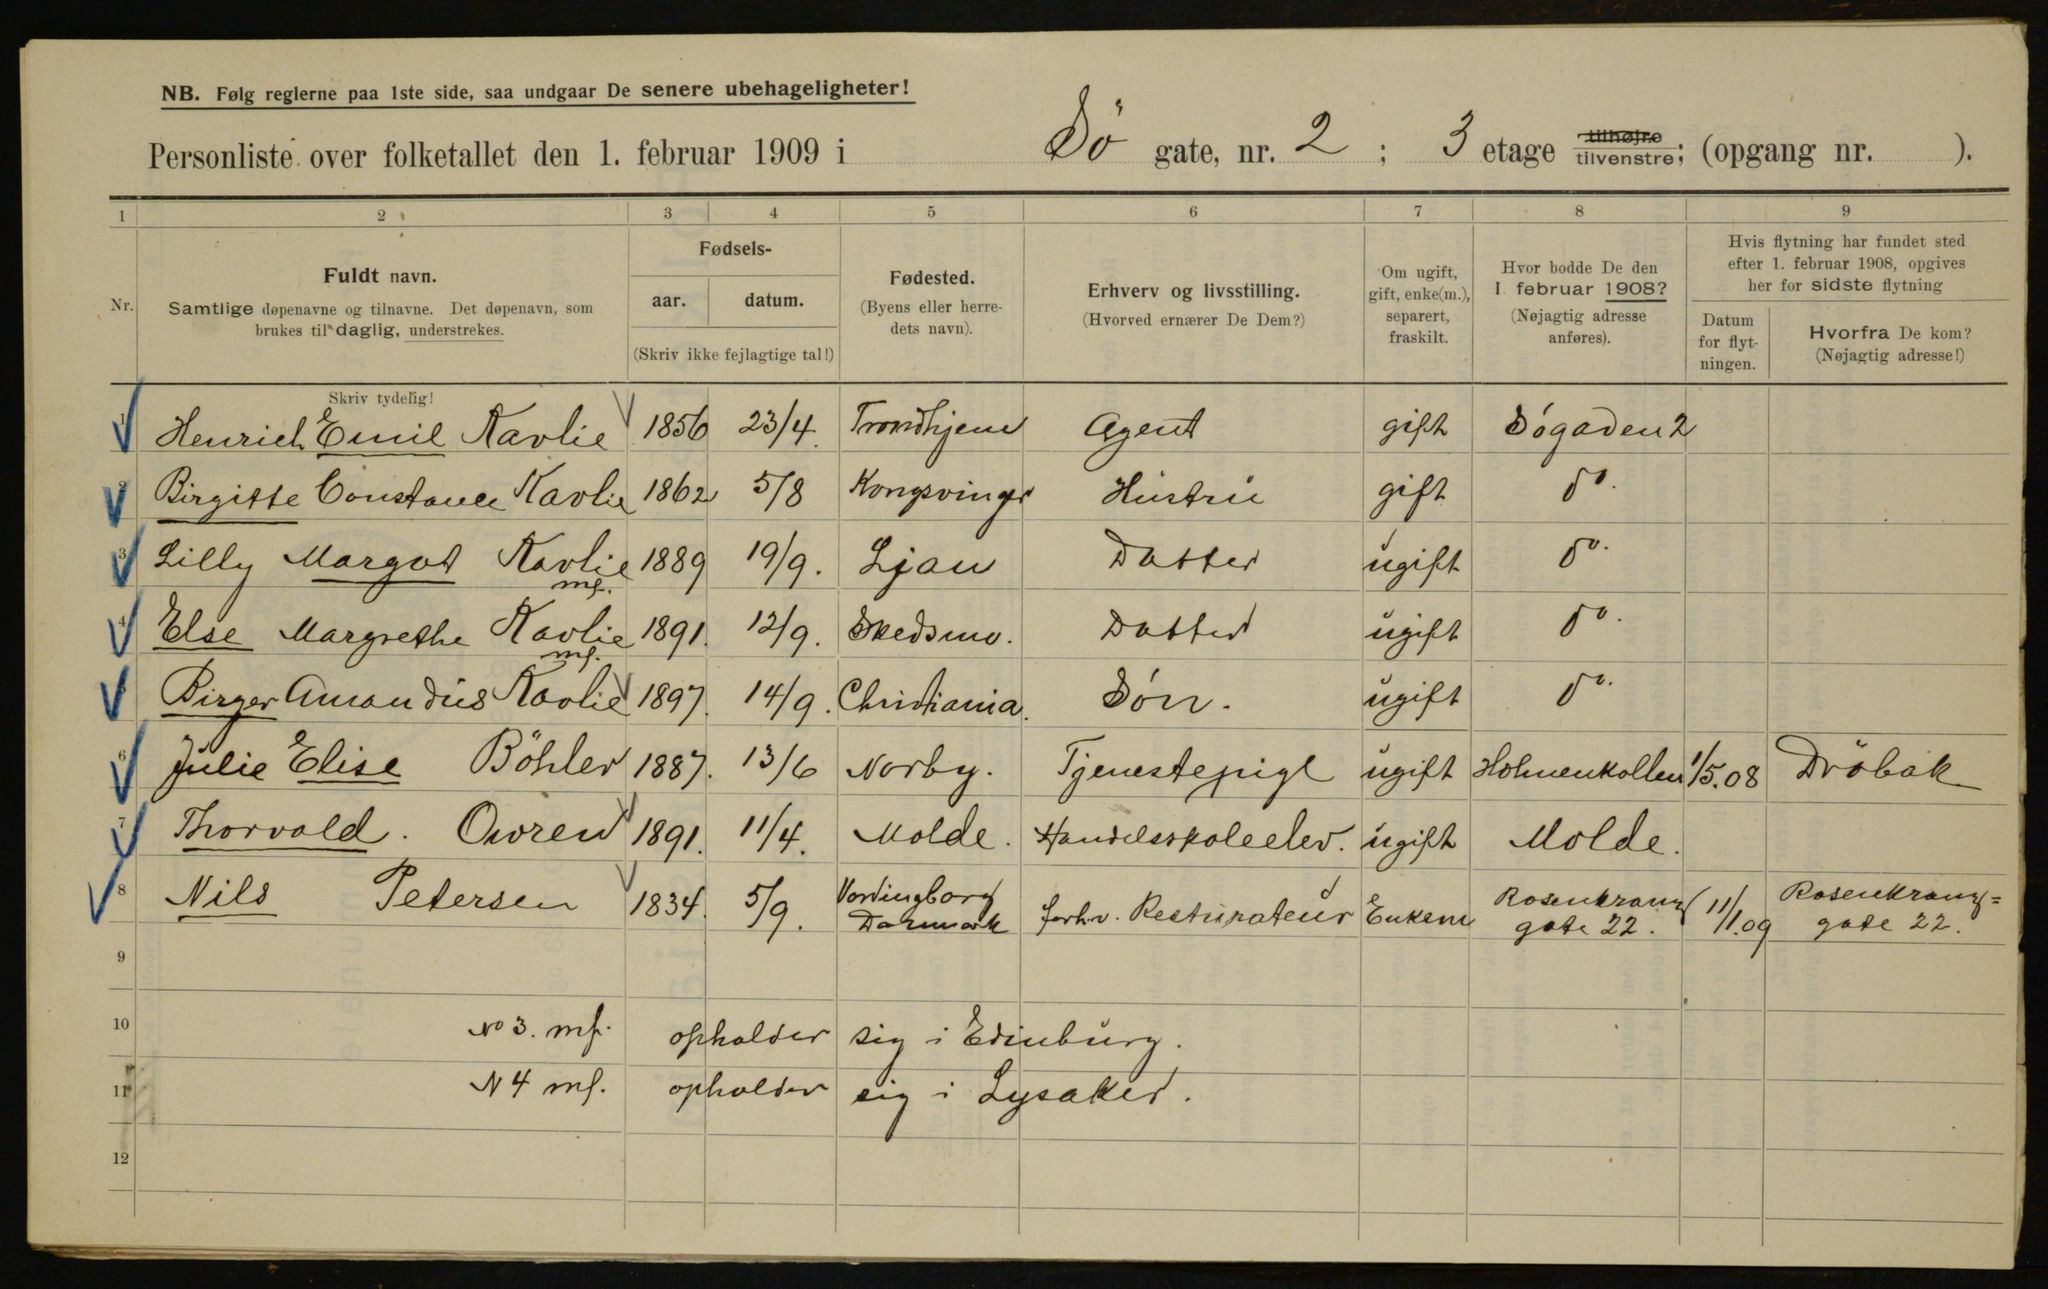 NB. Følg reglerne paa 1ste side, saa undgaar De senere ubehageligheter!
Personliste over folketallet den 1. februar 1909 i Sö gate, nr. 2 ; 3 etage tilhøjre tilvenstre; (opgang nr. ).
1 2 3 4 5 6 7 8 9
Nr. Fuldt navn. Samtlige døpenavne og tilnavne. Det døpenavn, som brukes til daglig, understrekes.
Fødsels- aar. datum. (Skriv ikke fejlagtige tal!)
Fødested. (Byens eller herredets navn).
Erhverv og livsstilling. (Hvorved ernærer De Dem?)
Om ugift, gift, enke(m.), separert, fraskilt.
Hvor bodde De den 1 februar 1908? (Nøjagtig adresse anføres).
Hvis flytning har fundet sted efter 1. februar 1908, opgives her for sidste flytning
Datum for flytningen. Hvorfra De kom? (Nøjagtig adresse!)
Skriv tydelig!
1 Henrich Emil Kavlie 1856 23/4. Trondhjem Agent gift Sögaden 2
2 Birgitte Constance Kavlie 1862 5/8 Kongsvinger Hustru gift do.
3 Lilly Margot Kavlie mf. 1889 19/9. Ljan Datter ugift do.
4 Else Margrethe Kavlie mf. 1891. 12/9. Skedsmo. Datter ugift do.
5 Birger Amandus Kavlie 1897. 14/9. Christiania. Sön. ugift do.
6 Julie Elise Böhler 1887. 13/6 Norby. Tjenestepige ugift Holmenkollen 1/5.08 Dröbak
7 Thorvald. Owren 1891. 11/4. Molde. Handelsskoleelev. ugift Molde.
8 Nils Petersen 1834. 5/9. Vordingborg Danmark forhv. Resturateur Enkem Rosenkranz gate 22. 11/1.09 Rosenkranz= gate 22.
9
10 No 3. mf. opholder sig i Edinburg.
11 N 4 mf. opholder sig i Lysaker.
12